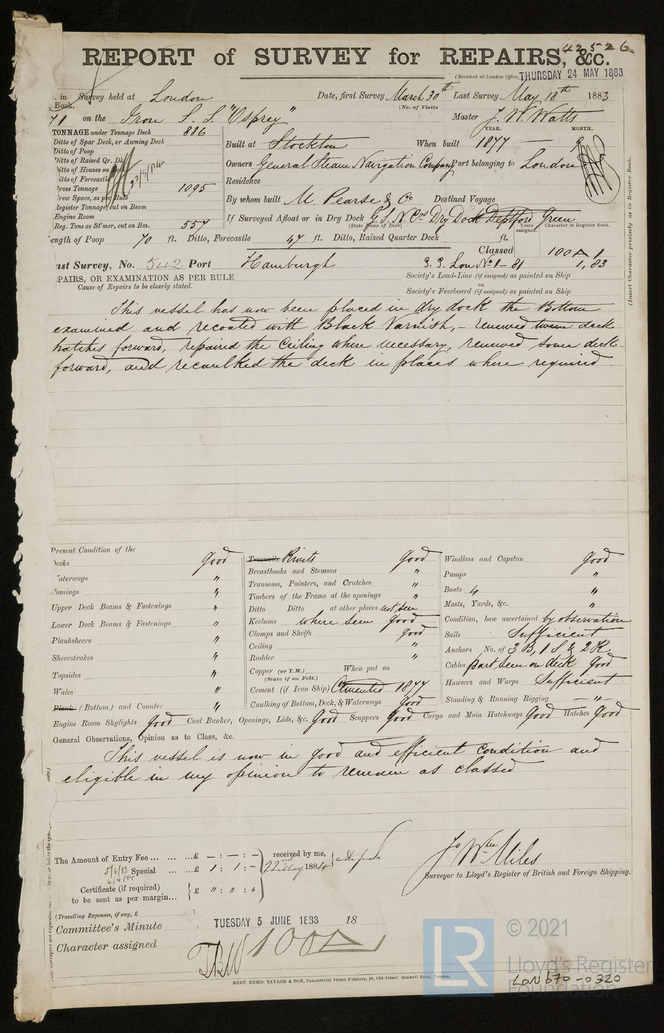 42526
REPORT of SURVEY for REPAIRS, &c.
(Received at London Office, THURSDAY 24 MAY 1883
in Survey held at London Date, first Survey March 30th Last Survey May 18th 1883
Book. (No. of Visits
71 on the Iron S. S. "Osprey" Master J. W. Watts
TONNAGE under Tonnage Deck 886
YEAR. MONTH.
Ditto of Spar Deck, or Awning Deck
Built at Stockton When built 1877
Ditto of Poop
Ditto of Raised Qr. Dk.
Owners General Steam Navigation Company Port belonging to London
Ditto of Houses on
Ditto of Forecastle
Residence
Gross Tonnage 1095
By whom built M. Pearse & Co Destined Voyage
Register Tonnage cut on Beam
Engine Room
If Surveyed Afloat or in Dry Dock G.S.N.Co's Dry Dock Deptford Green
(State name of Dock)
Reg. Tons as St'mer, cut on Bm. 557
Years assigned. Character in Register Book.
Length of Poop 70 ft. Ditto, Forecastle 47 ft. Ditto, Raised Quarter Deck ft.
Classed 100 A 1
Last Survey, No. 542 Port Hamburgh S.S. Lon. No 1-81 1,83
REPAIRS, OR EXAMINATION AS PER RULE
Cause of Repairs to be clearly stated.
Society's Load-Line (if assigned) as painted on Ship
or
Society's Freeboard (if assigned) as painted on Ship
(Insert Character precisely as in Register Book.
This vessel has now been placed in dry dock the Bottom
examined and recoated with Black Varnish, - renewed tween deck
hatches forward, repaired the Ceiling where necessary, renewed some deck
forward, and recaulked the deck in places where required
Present Condition of the
Decks Good
Waterways "
Comings "
Upper Deck Beams & Fastenings "
Lower Deck Beams & Fastenings "
Planksheers "
Sheerstrakes "
Topsides "
Wales "
Plank (Bottom) and Counter "
Treenails Rivets Good
Breasthooks and Stemson "
Transoms, Pointers, and Crutches "
Timbers of the Frame at the openings "
Ditto Ditto at other places not seen
Keelsons where seen Good
Clamps and Shelfs Good
Ceiling "
Rudder "
Copper (or Y.M.) When put on
(State if on Felt.)
Cement (if Iron Ship) Cemented 1877
Caulking of Bottom, Deck, & Waterways Good
Windlass and Capstan Good
Pumps "
Boats 4 "
Masts, Yards, &c. "
Condition, how ascertained by observation
Sails Sufficient
Anchors No. of 3 B, 1 S & 2 K.
Cables Part seen on deck Good
Hawsers and Warps Sufficient
Standing & Running Rigging "
Engine Room Skylights Good Coal Bunker, Openings, Lids, &c. Good Scuppers Good Cargo and Main Hatchways Good Hatches Good
General Observations, Opinion as to Class, &c.
This vessel is now in good and efficient condition and
eligible in my opinion to remain as classed
The Amount of Entry Fee ... ... £ - : - : -
received by me,
Special ... £ 1 : 1 : -
Certificate (if required)
to be sent as per margin... £ " : " : 6
Jas Wm Miles
Surveyor to Lloyd's Register of British and Foreign Shipping.
(Travelling Expenses, if any, £
Committee's Minute TUESDAY 5 JUNE 1883 18
Character assigned 100A
ROBT. EDMD. TAYLOR & SON, Commercial Steam Printers, 19, Old Street Goswell Road, London.
LR
© 2021
Lloyd's Register
Foundation
LON670-0320